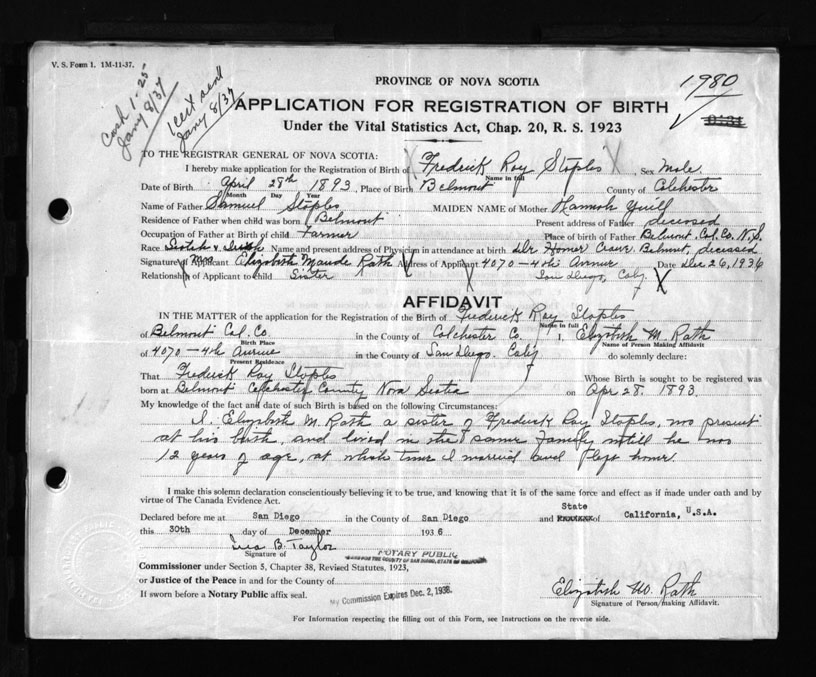 V. S. Form 1. 1M-11-37.
Cash 1-25
Jany 8/37
1 cert sent
Jany 8/37
1980
PROVINCE OF NOVA SCOTIA
APPLICATION FOR REGISTRATION OF BIRTH
Under the Vital Statistics Act, Chap. 20, R. S. 1923
TO THE REGISTRAR GENERAL OF NOVA SCOTIA:
I hereby make application for the Registration of Birth of Fredrick Roy Staples Sex Male
Name in full
Date of Birth April 28th 1893, Place of Birth Belmont County of Colchester
Month Day Year
Name of Father Samuel Staples MAIDEN NAME of Mother Hannah Yuill
Residence of Father when child was born Belmont Present address of Father deceased
Occupation of Father at Birth of child Farmer Place of birth of Father Belmont, Col. Co. N.S.
Race Scotch & Name and present address of Physician in attendance at birth Dr. Homer Belmont, deceased
Signature of Applicant Mrs Elizabeth Maude Rath Address of Applicant 4070-4th Avenue Date Dec 26, 1936
Relationship of Applicant to Child Sister San Diego, Calif
AFFIDAVIT
IN THE MATTER of the application for the Registration of the Birth of Fredrick Roy Staples
Name in full
of Belmont Col. Co. in the County of Colchester Co. I, Elizabeth M. Rath
Birth Place Name of Person Making Affidavit
of 4070-4th Avenue in the County of San Diego. Calif do solemnly declare:
Present Residence
That Fredrick Roy Staples Whose Birth is sought to be registered was
born at Belmont Colchester County Nova Scotia on Apr 28. 1893.
My knowledge of the fact and date of such Birth is based on the following Circumstances:
I. Elizabeth M. Rath a sister of Fredrick Roy Staples, was present
at his birth, and lived in the same family untill he was
12 years of age, at which time I married and left home.
I make this solemn declaration conscientiously believing it to be true, and knowing that it is of the same force and effect as if made under oath and by
virtue of The Canada Evidence Act.
Declared before me at San Diego in the County of San Diego and State of California, U.S.A.
this 30th day of December 1936
Ina B. Taylor
Signature of
NOTARY PUBLIC
Commissioner under Section 5, Chapter 38, Revised Statutes, 1923,
or Justice of the Peace in and for the County of
If sworn before a Notary Public affix seal.
My Commission Expires Dec. 2, 1938.
Elizabeth M. Rath
Signature of Person making Affidavit.
For Information respecting the filling out of this Form, see Instructions on the reverse side.